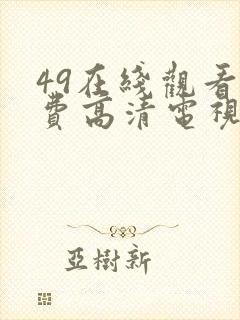 49在綫觀看
費高清電視
亞樹新